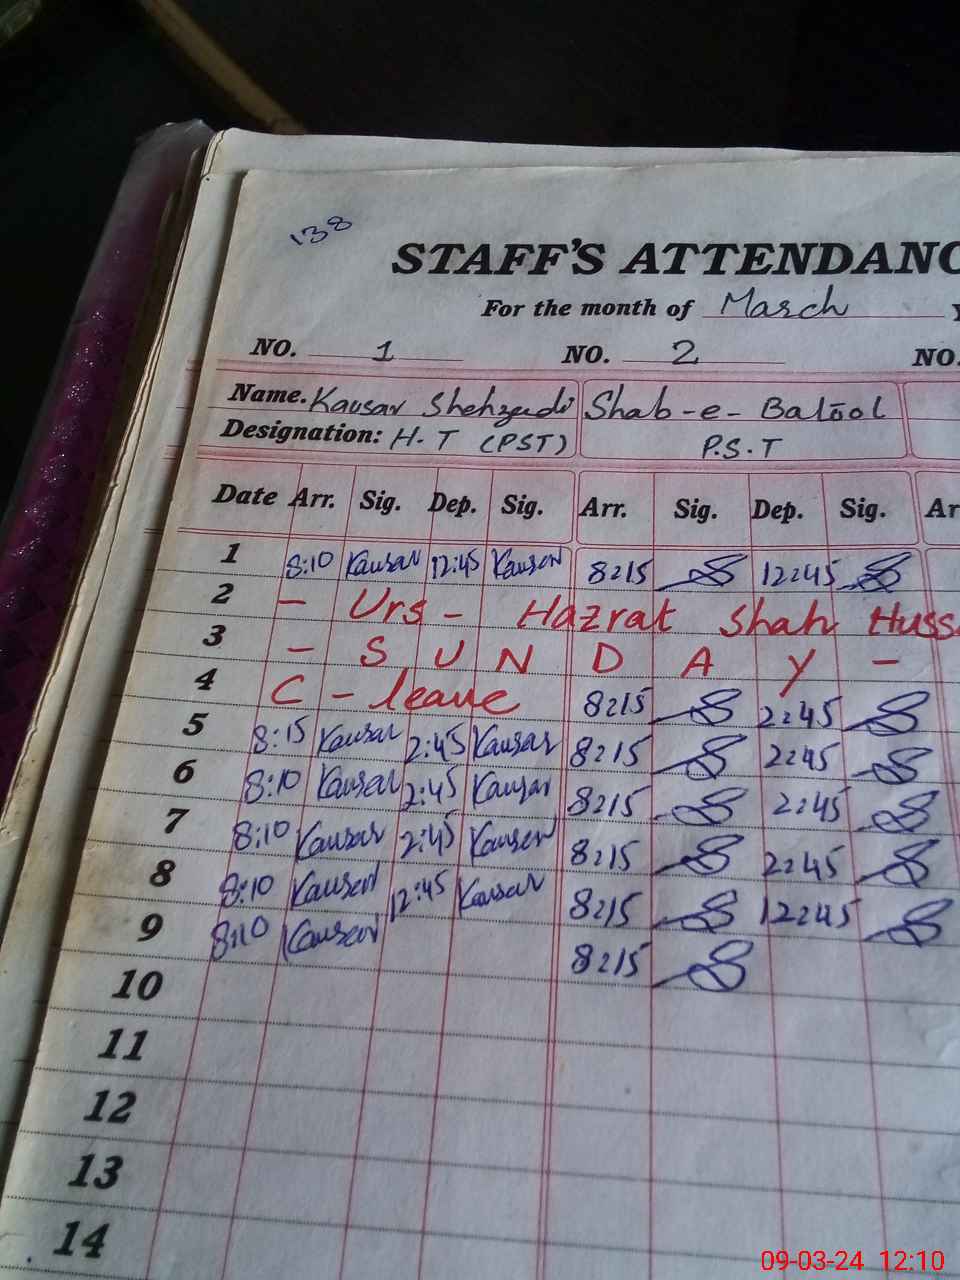 138
STAFF'S ATTENDANC
For the month of March Y
NO. 1 NO. 2 NO.
Name. Kausar Shehzadi Shab-e-Batool
Designation: H.T (PST) P.S.T
Date Arr. Sig. Dep. Sig. Arr. Sig. Dep. Sig. Ar
1 8:10 Kausar 12:45 Kausar 8:15 12:45
2 - Urs - Hazrat Shah Huss
3 - S U N D A Y -
4 C - leave 8:15 2:45
5 8:15 Kausar 2:45 Kausar 8:15 2:45
6 8:10 Kausar 2:45 Kausar 8:15 2:45
7 8:10 Kausar 2:45 Kausar 8:15 2:45
8 8:10 Kausar 12:45 Kausar 8:15 12:45
9 8:10 Kausar 8:15
10
11
12
13
14
09-03-24 12:10